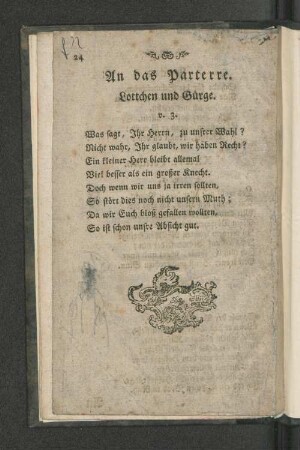 24
An das Parterre.
Lottchen und Gürge.
v. Z.
Was sagt, Ihr Herrn, zu unsrer Wahl?
Nicht wahr, Ihr glaubt, wir haben Recht?
Ein kleiner Herr bleibt allemal
Viel besser als ein großer Knecht.
Doch wenn wir uns ja irren sollten,
So stört dies noch nicht unsern Muth;
Da wir Euch blos gefallen wollten,
So ist schon unsre Absicht gut.